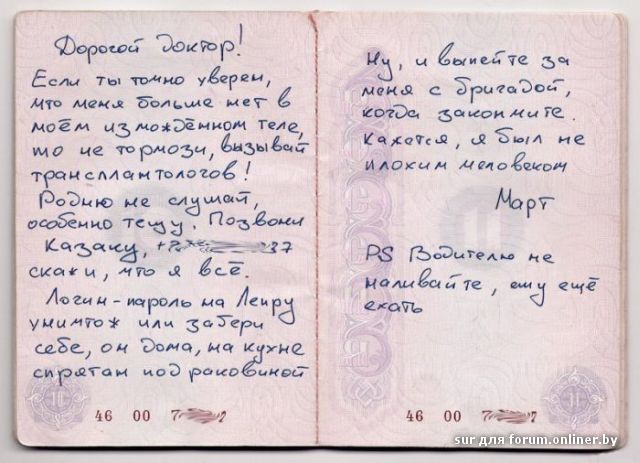 Дорогой доктор!
Если ты точно уверен,
что меня больше нет в
моём измождённом теле,
то не тормози, вызывай
трансплантологов!
Родню не слушай,
особенно тещу. Позвони
Казаку, +7 37
скажи, что я всё.
Логин-пароль на Лепру
уничтож или забери
себе, он дома, на кухне
спрятан под раковиной
46 00 7
Ну, и выпейте за
меня с бригадой,
когда закончите.
Кажется, я был не
плохим человеком
Март
PS Водителю не
наливайте, ему ещё
ехать
46 00 7
sur для forum.onliner.by